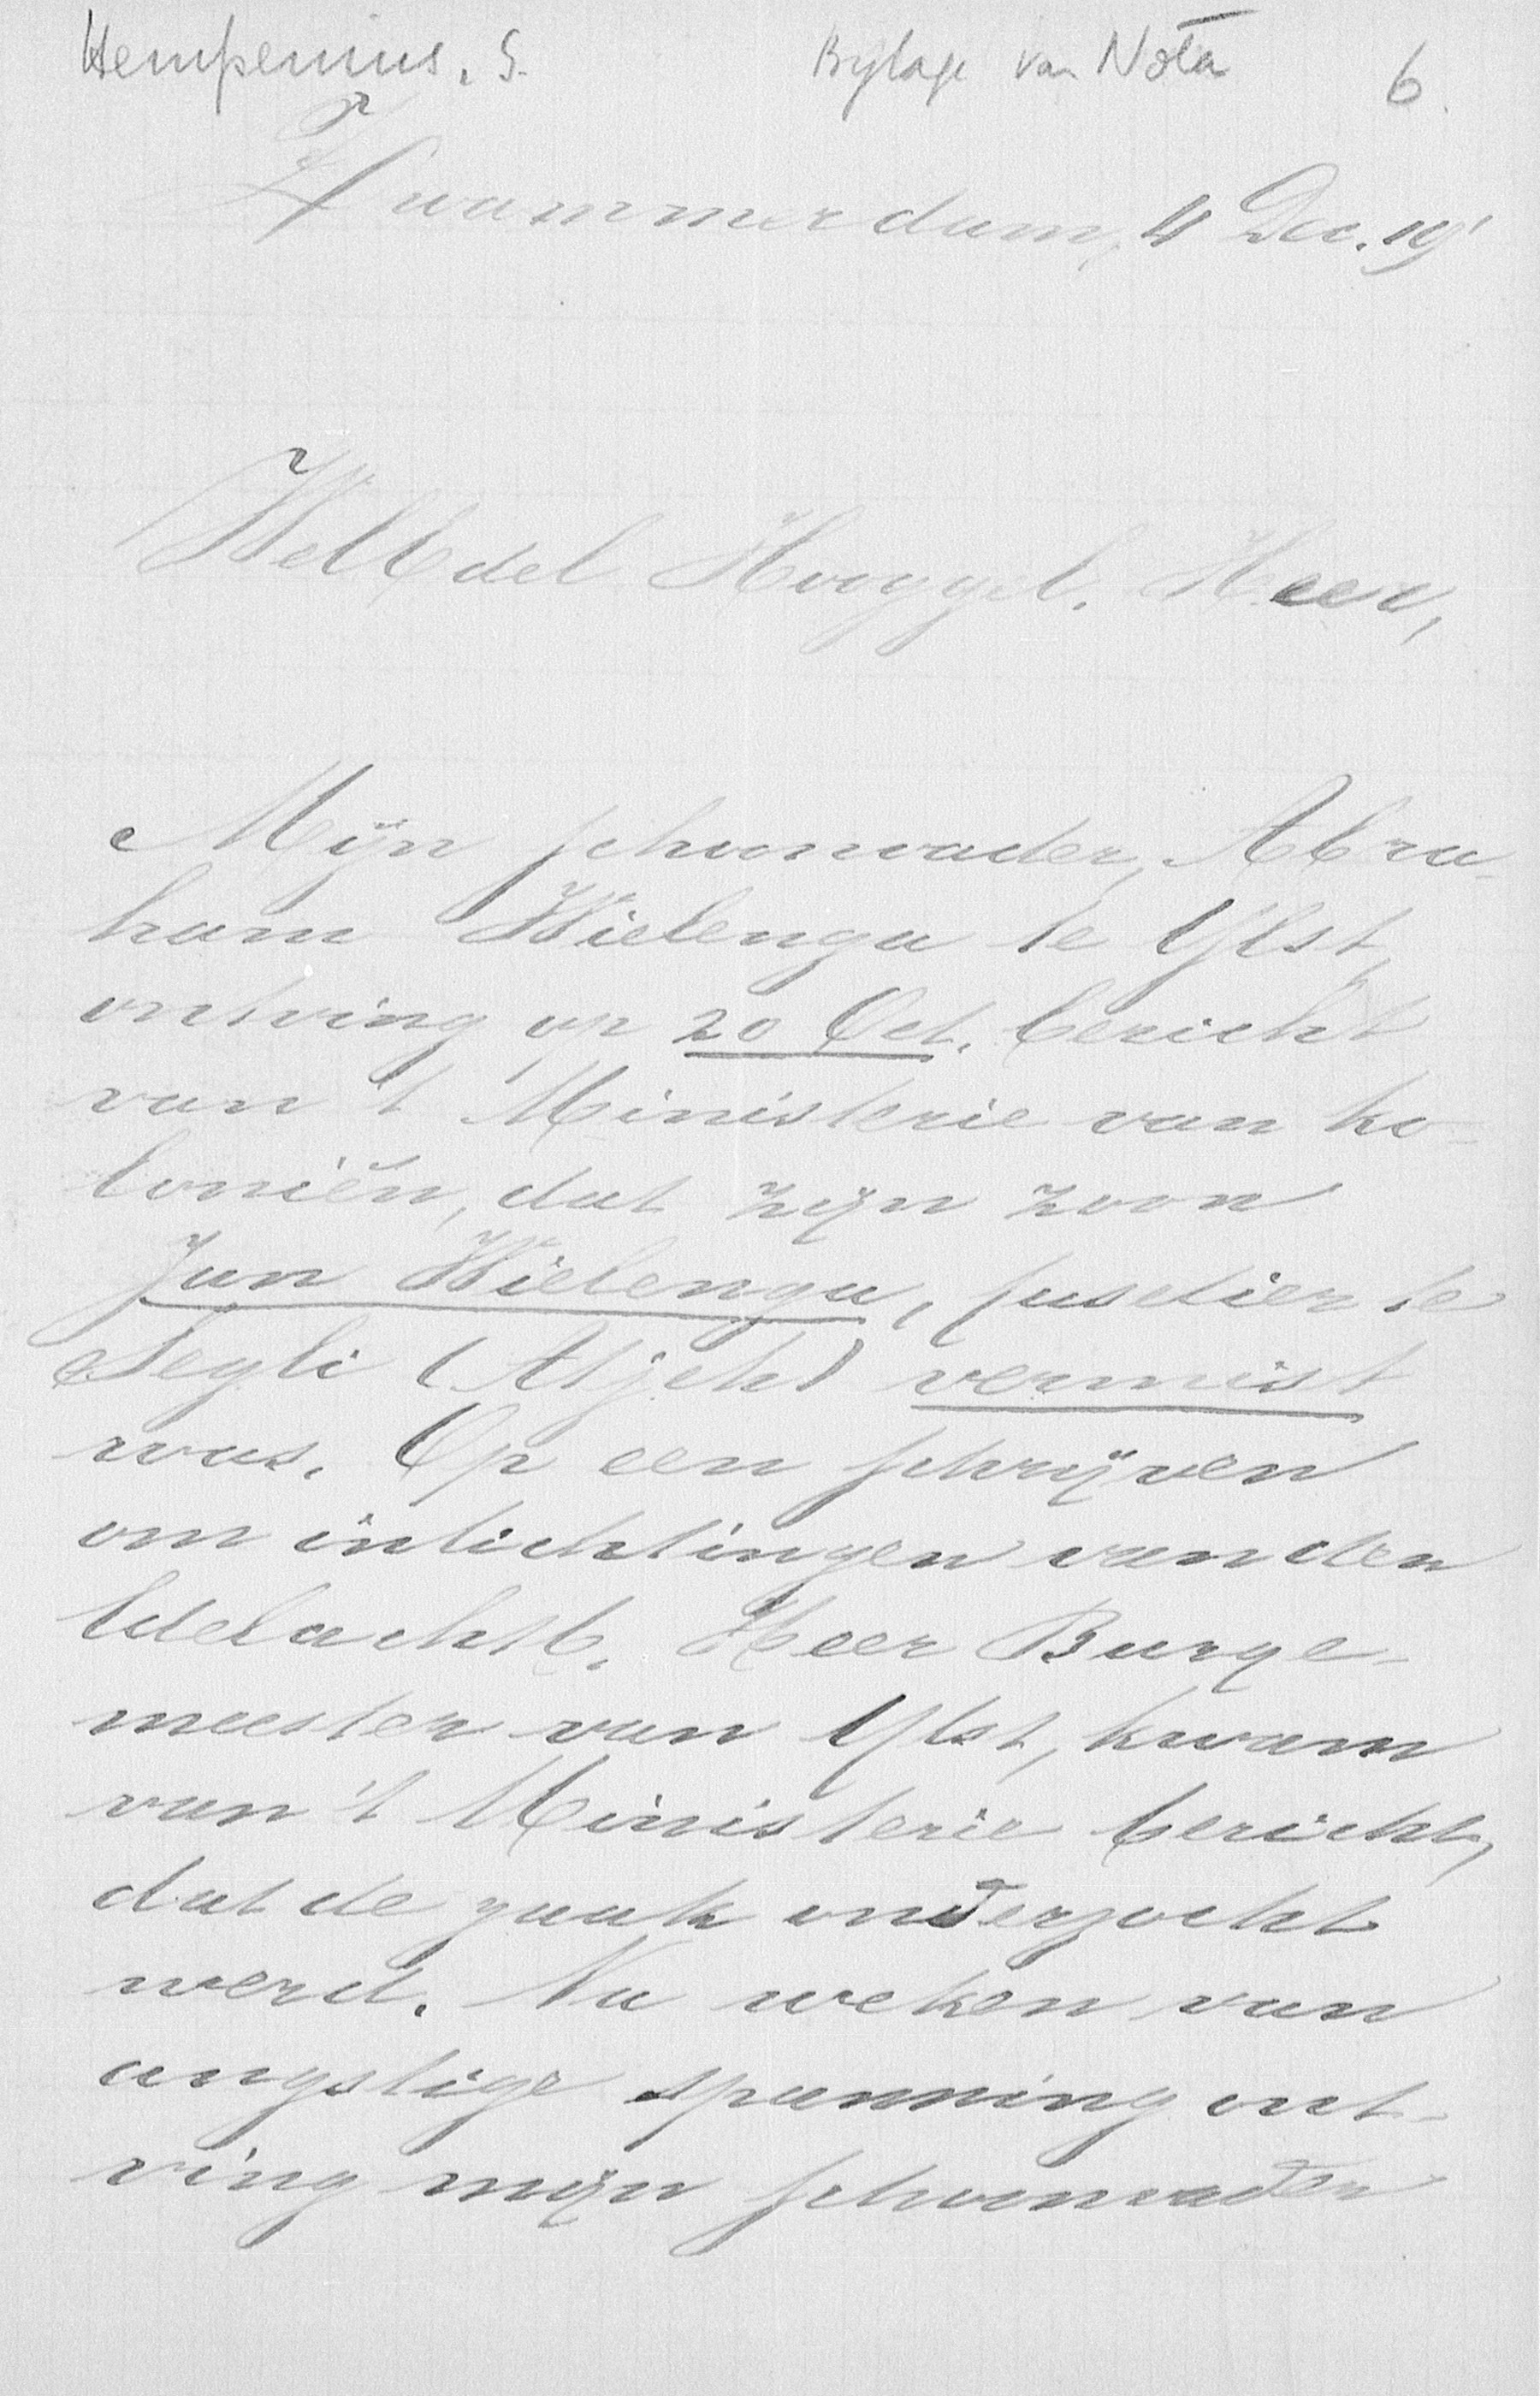 Hempenius, S. Bijlage van Nota 6.
Zwammerdam, 4 Dec. 19'
WelEdel Hooggel. Heer,
Mijn schoonvader, Abra-
ham Wielenga te IJlst,
ontving op 20 Oct. bericht
van 't Ministerie van ko-
loniën, dat zijn zoon
Jan Wielenga, fuselier te
Segli (Atjeh) vermist
was. Op een schrijven
om inlichtingen van den
Edelachtb. Heer Burge-
meester van IJlst, kwam
van 't Ministerie bericht,
dat de zaak onderzocht
werd. Na weken van
angstige spanning ont-
ving mijn schoonvader